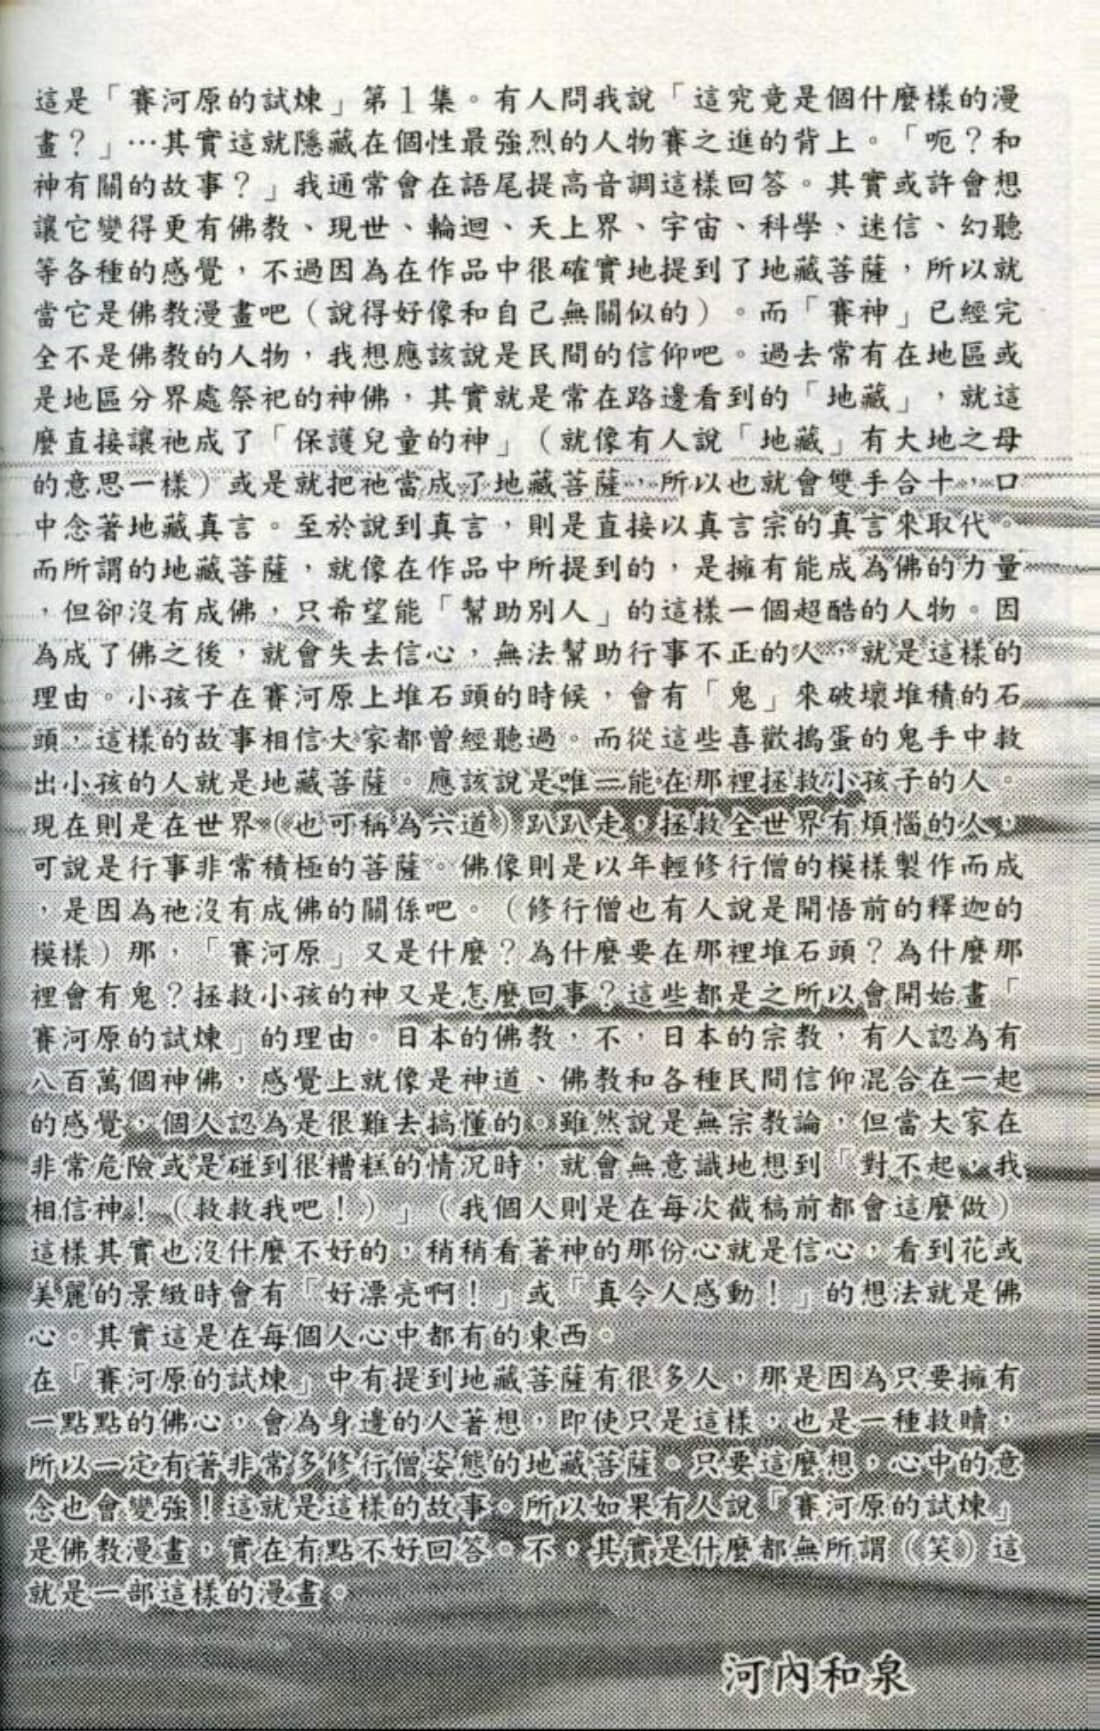 這是「賽河原的試煉」第1集。有人問我說「這究竟是個什麼樣的漫
畫?」…其實這就隱藏在個性最強烈的人物賽之進的背上。「呃?和
神有關的故事?」我通常會在語尾提高音調這樣回答。其實或許會想
讓它變得更有佛教、現世、輪迴、天上界、宇宙、科學、迷信、幻聽
等各種的感覺,不過因為在作品中很確實地提到了地藏菩薩,所以就
當它是佛教漫畫吧(說得好像和自己無關似的)。而「賽神」已經完
全不是佛教的人物,我想應該說是民間的信仰吧。過去常有在地區或
是地區分界處祭祀的神佛,其實就是常在路邊看到的「地藏」,就這
麼直接讓祂成了「保護兒童的神」(就像有人說「地藏」有大地之母
的意思一樣)或是就把祂當成了地藏菩薩,所以也就會雙手合十,口
中念著地藏真言。至於說到真言,則是直接以真言宗的真言來取代。
而所謂的地藏菩薩,就像在作品中所提到的,是擁有能成為佛的力量
,但卻沒有成佛,只希望能「幫助別人」的這樣一個超酷的人物。因
為成了佛之後,就會失去信心,無法幫助行事不正的人,就是這樣的
理由。小孩子在賽河原上堆石頭的時候,會有「鬼」來破壞堆積的石
頭,這樣的故事相信大家都曾經聽過。而從這些喜歡搗蛋的鬼手中救
出小孩的人就是地藏菩薩。應該說是唯一能在那裡拯救小孩子的人。
現在則是在世界(也可稱為六道)趴趴走,拯救全世界有煩惱的人,
可說是行事非常積極的菩薩。佛像則是以年輕修行僧的模樣製作而成
,是因為祂沒有成佛的關係吧。(修行僧也有人說是開悟前的釋迦的
模樣)那,「賽河原」又是什麼?為什麼要在那裡堆石頭?為什麼那
裡會有鬼?拯救小孩的神又是怎麼回事?這些都是之所以會開始畫「
賽河原的試煉」的理由。日本的佛教,不,日本的宗教,有人認為有
八百萬個神佛,感覺上就像是神道、佛教和各種民間信仰混合在一起
的感覺,個人認為是很難去搞懂的。雖然說是無宗教論,但當大家在
非常危險或是碰到很糟糕的情況時,就會無意識地想到「對不起,我
相信神!(救救我吧!)」(我個人則是在每次截稿前都會這麼做)
這樣其實也沒什麼不好的,稍稍看著神的那份心就是信心,看到花或
美麗的景緻時會有「好漂亮啊!」或「真令人感動!」的想法就是佛
心。其實這是在每個人心中都有的東西。
在「賽河原的試煉」中有提到地藏菩薩有很多人,那是因為只要擁有
一點點的佛心,會為身邊的人著想,即使只是這樣,也是一種救贖,
所以一定有著非常多修行僧姿態的地藏菩薩。只要這麼想,心中的意
念也會變強!這就是這樣的故事。所以如果有人說「賽河原的試煉」
是佛教漫畫,實在有點不好回答。不,其實是什麼都無所謂(笑)這
就是一部這樣的漫畫。
河內和泉